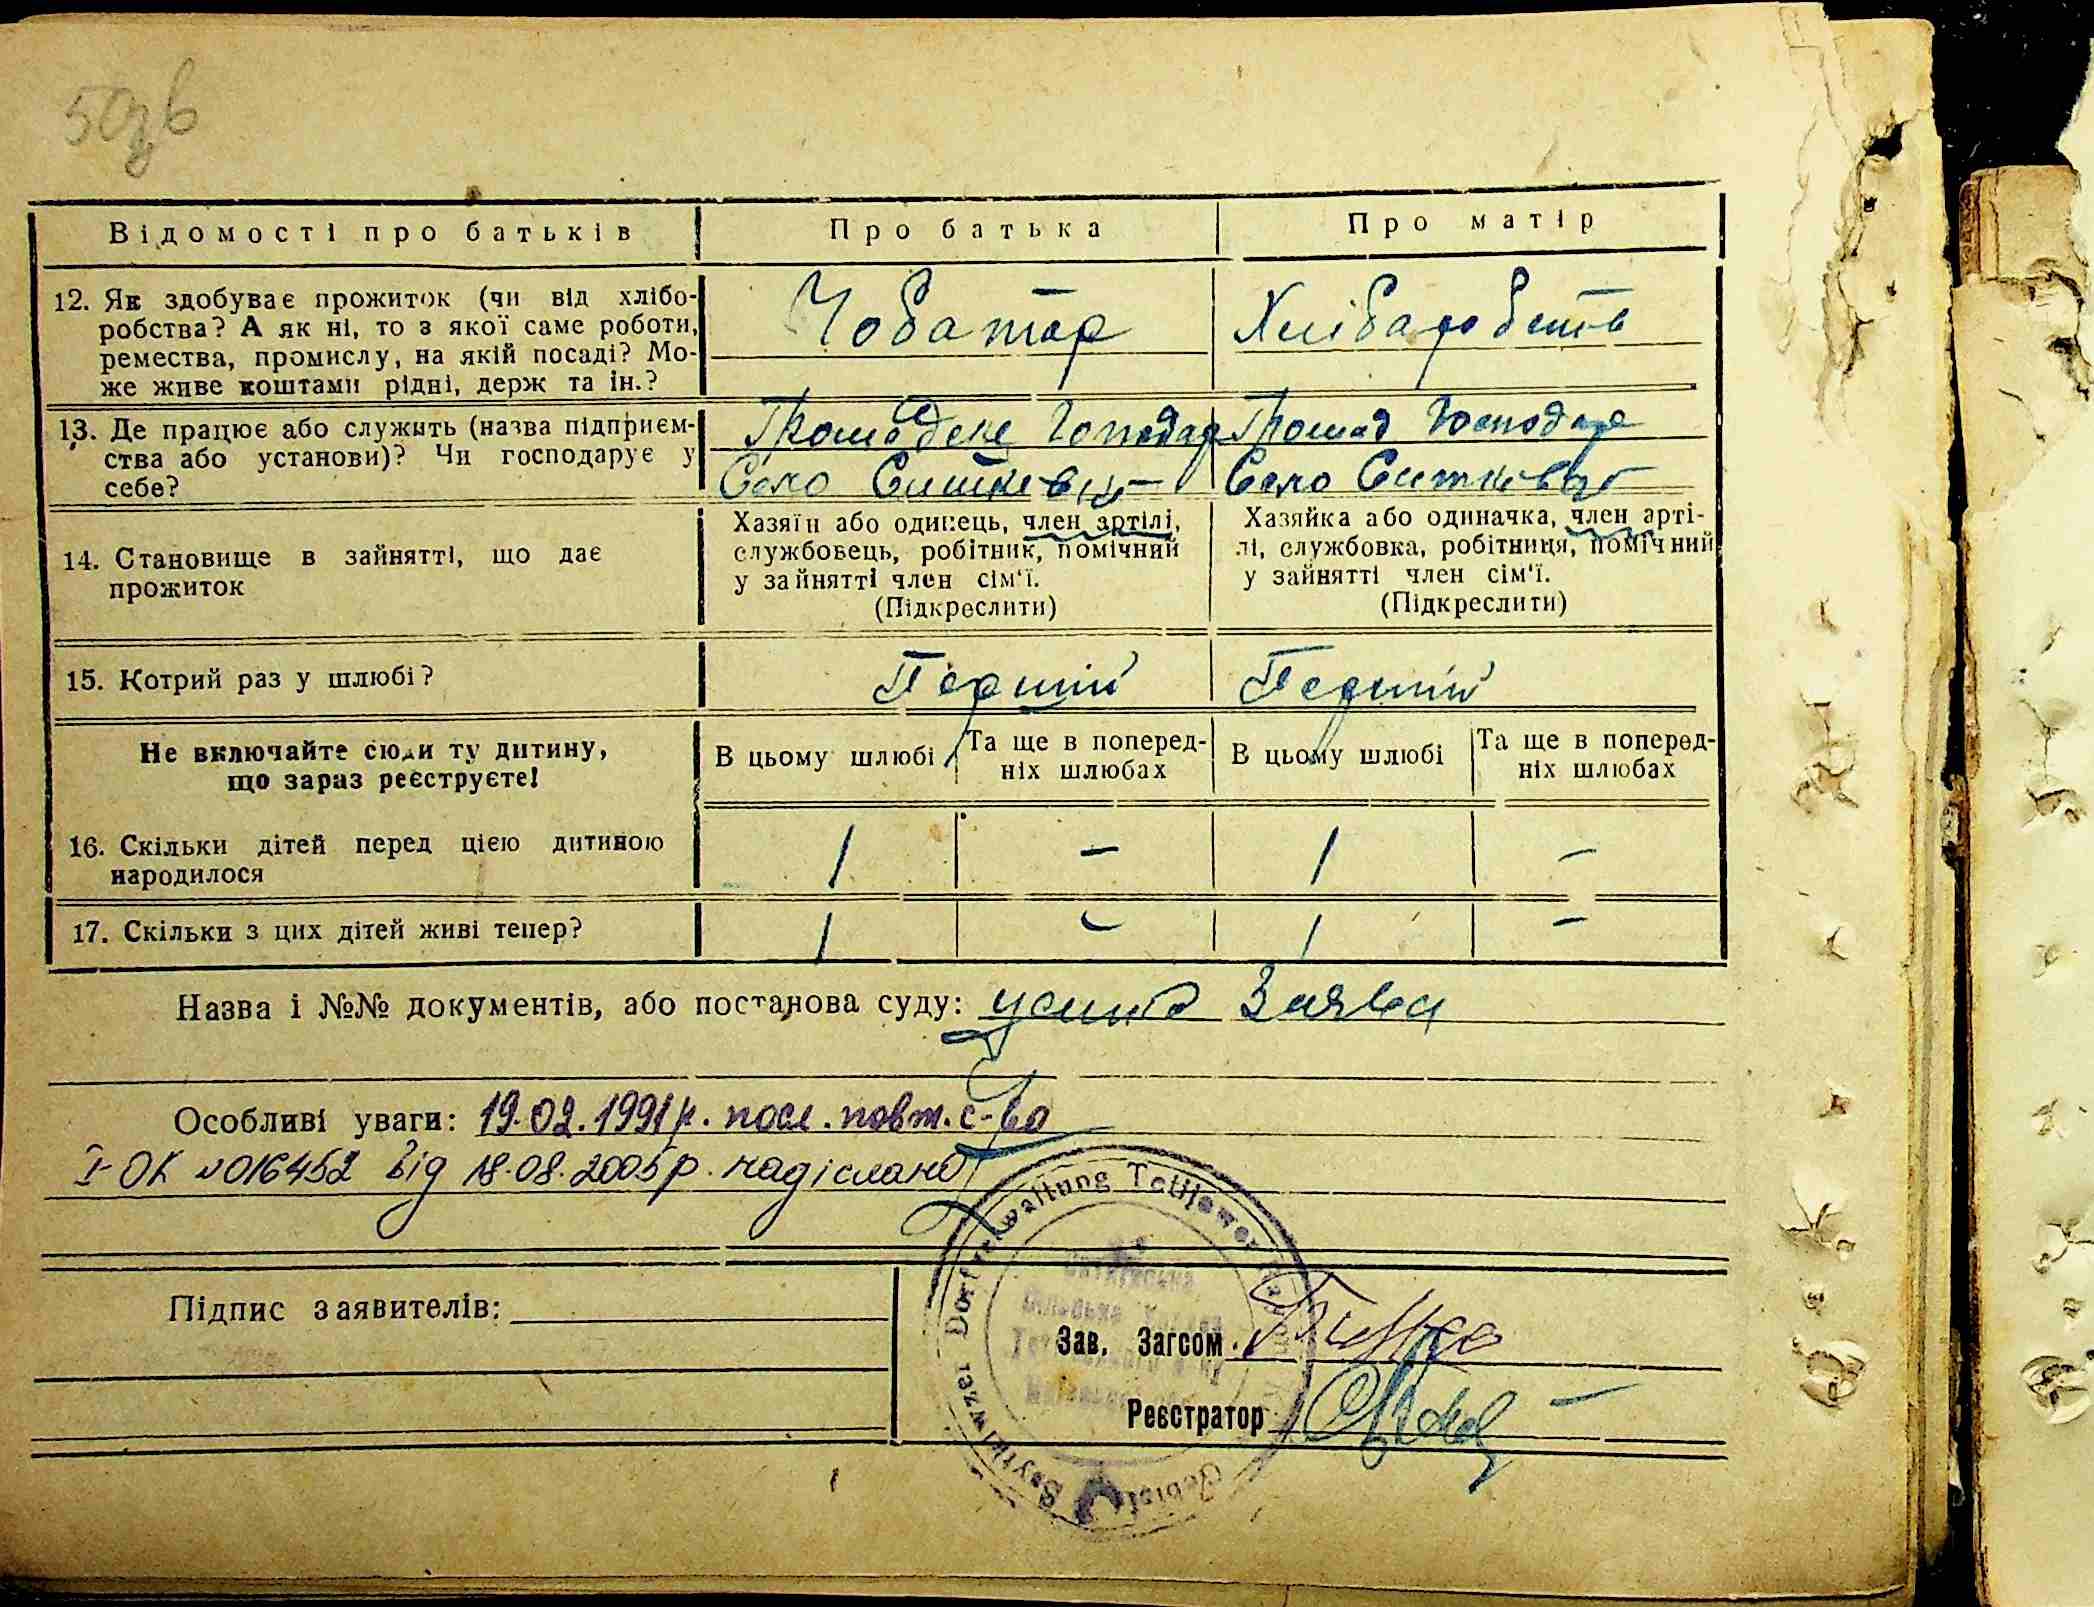 50зв
Відомості про батьків
Про батька
Про матір
12. Як здобуває прожиток (чи від хлібо-
робства? А як ні, то з якої саме роботи,
ремества, промислу, на якій посаді? Мо-
же живе коштами рідні, держ та ін.?
Чоботар
Хлібаробств
13. Де працює або служить (назва підприєм-
ства або установи)? Чи господарує у
себе?
Господар
Село Ситківці
Громад Господар
Село Ситківці
14. Становище в зайнятті, що дає
прожиток
Хазяїн або одинець, член артілі,
службовець, робітник, помічний
у зайнятті член сім'ї.
(Підкреслити)
Хазяйка або одиначка, член арті-
лі, службовка, робітниця, помічний
у зайнятті член сім'ї.
(Підкреслити)
15. Котрий раз у шлюбі?
Первий
Первий
Не включайте сюди ту дитину,
що зараз реєструєте!
В цьому шлюбі
Та ще в поперед-
ніх шлюбах
В цьому шлюбі
Та ще в поперед-
ніх шлюбах
16. Скільки дітей перед цією дитиною
народилося
1 – 1 –
17. Скільки з цих дітей живі тепер?
1 – 1 –
Назва і №№ документів, або постанова суду: усна Заява
Особливі уваги: 19.02.1991р. посл. повт. с-во
I-ОК №016452 від 18.08.2005р. надіслано
Підпис заявителів:
Зав. Загсом
Реєстратор